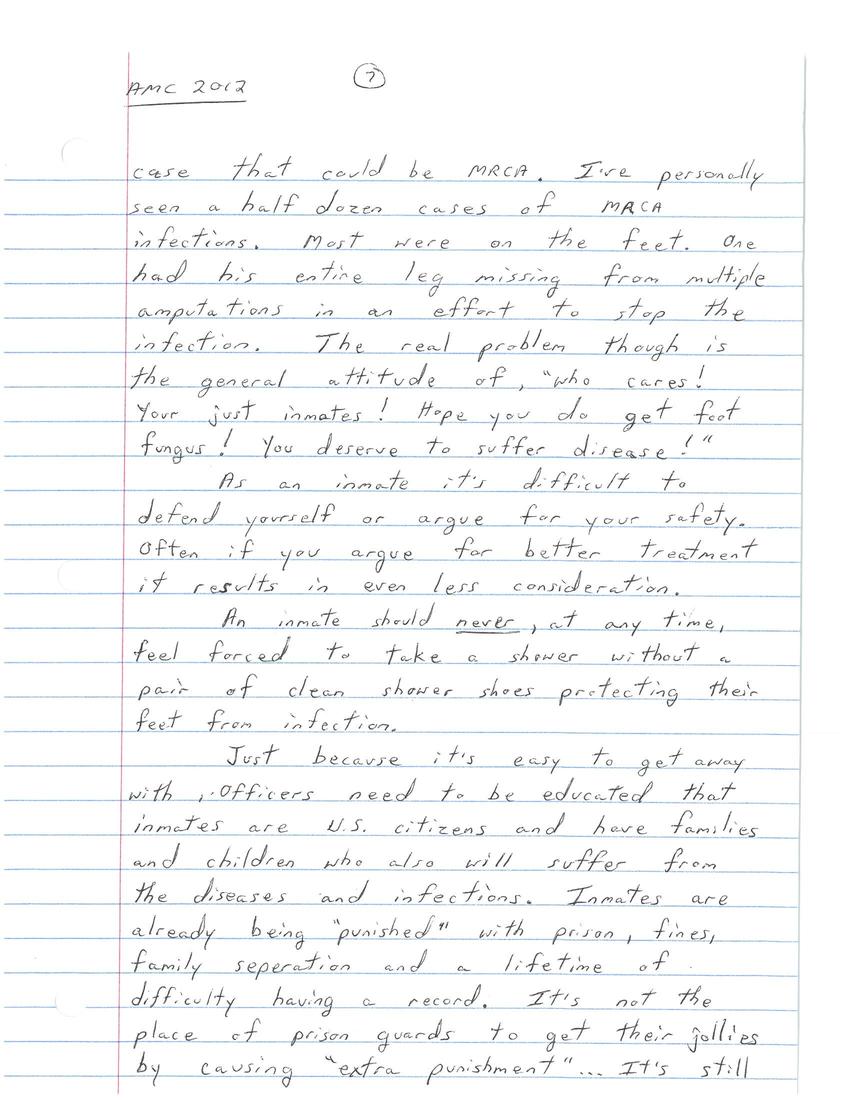 AMC 2012
7
case that could be MRCA. I've personally
seen a half dozen cases of MRCA
infections. Most were on the feet. One
had his entire leg missing from multiple
amputations in an effort to stop the
infection. The real problem though is
the general attitude of, "who cares!
Your just inmates! Hope you do get foot
fungus! You deserve to suffer disease!"
As an inmate it's difficult to
defend yourself or argue for your safety.
Often if you argue for better treatment
it results in even less consideration.
An inmate should never, at any time,
feel forced to take a shower without a
pair of clean shower shoes protecting their
feet from infection.
Just because it's easy to get away
with, Officers need to be educated that
inmates are U.S. citizens and have families
and children who also will suffer from
the diseases and infections. Inmates are
already being "punished" with prison, fines,
family seperation and a lifetime of
difficulty having a record. It's not the
place of prison guards to get their jollies
by causing "extra punishment"... It's still